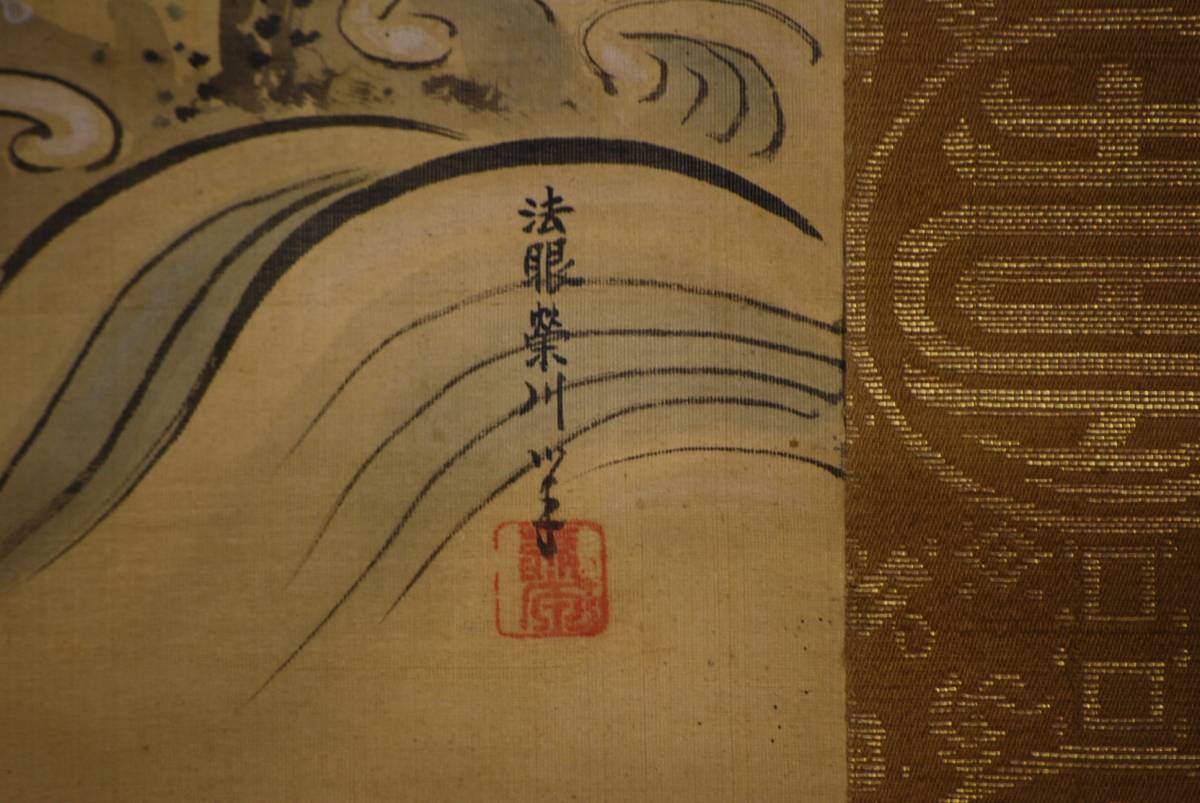 法眼榮川筆